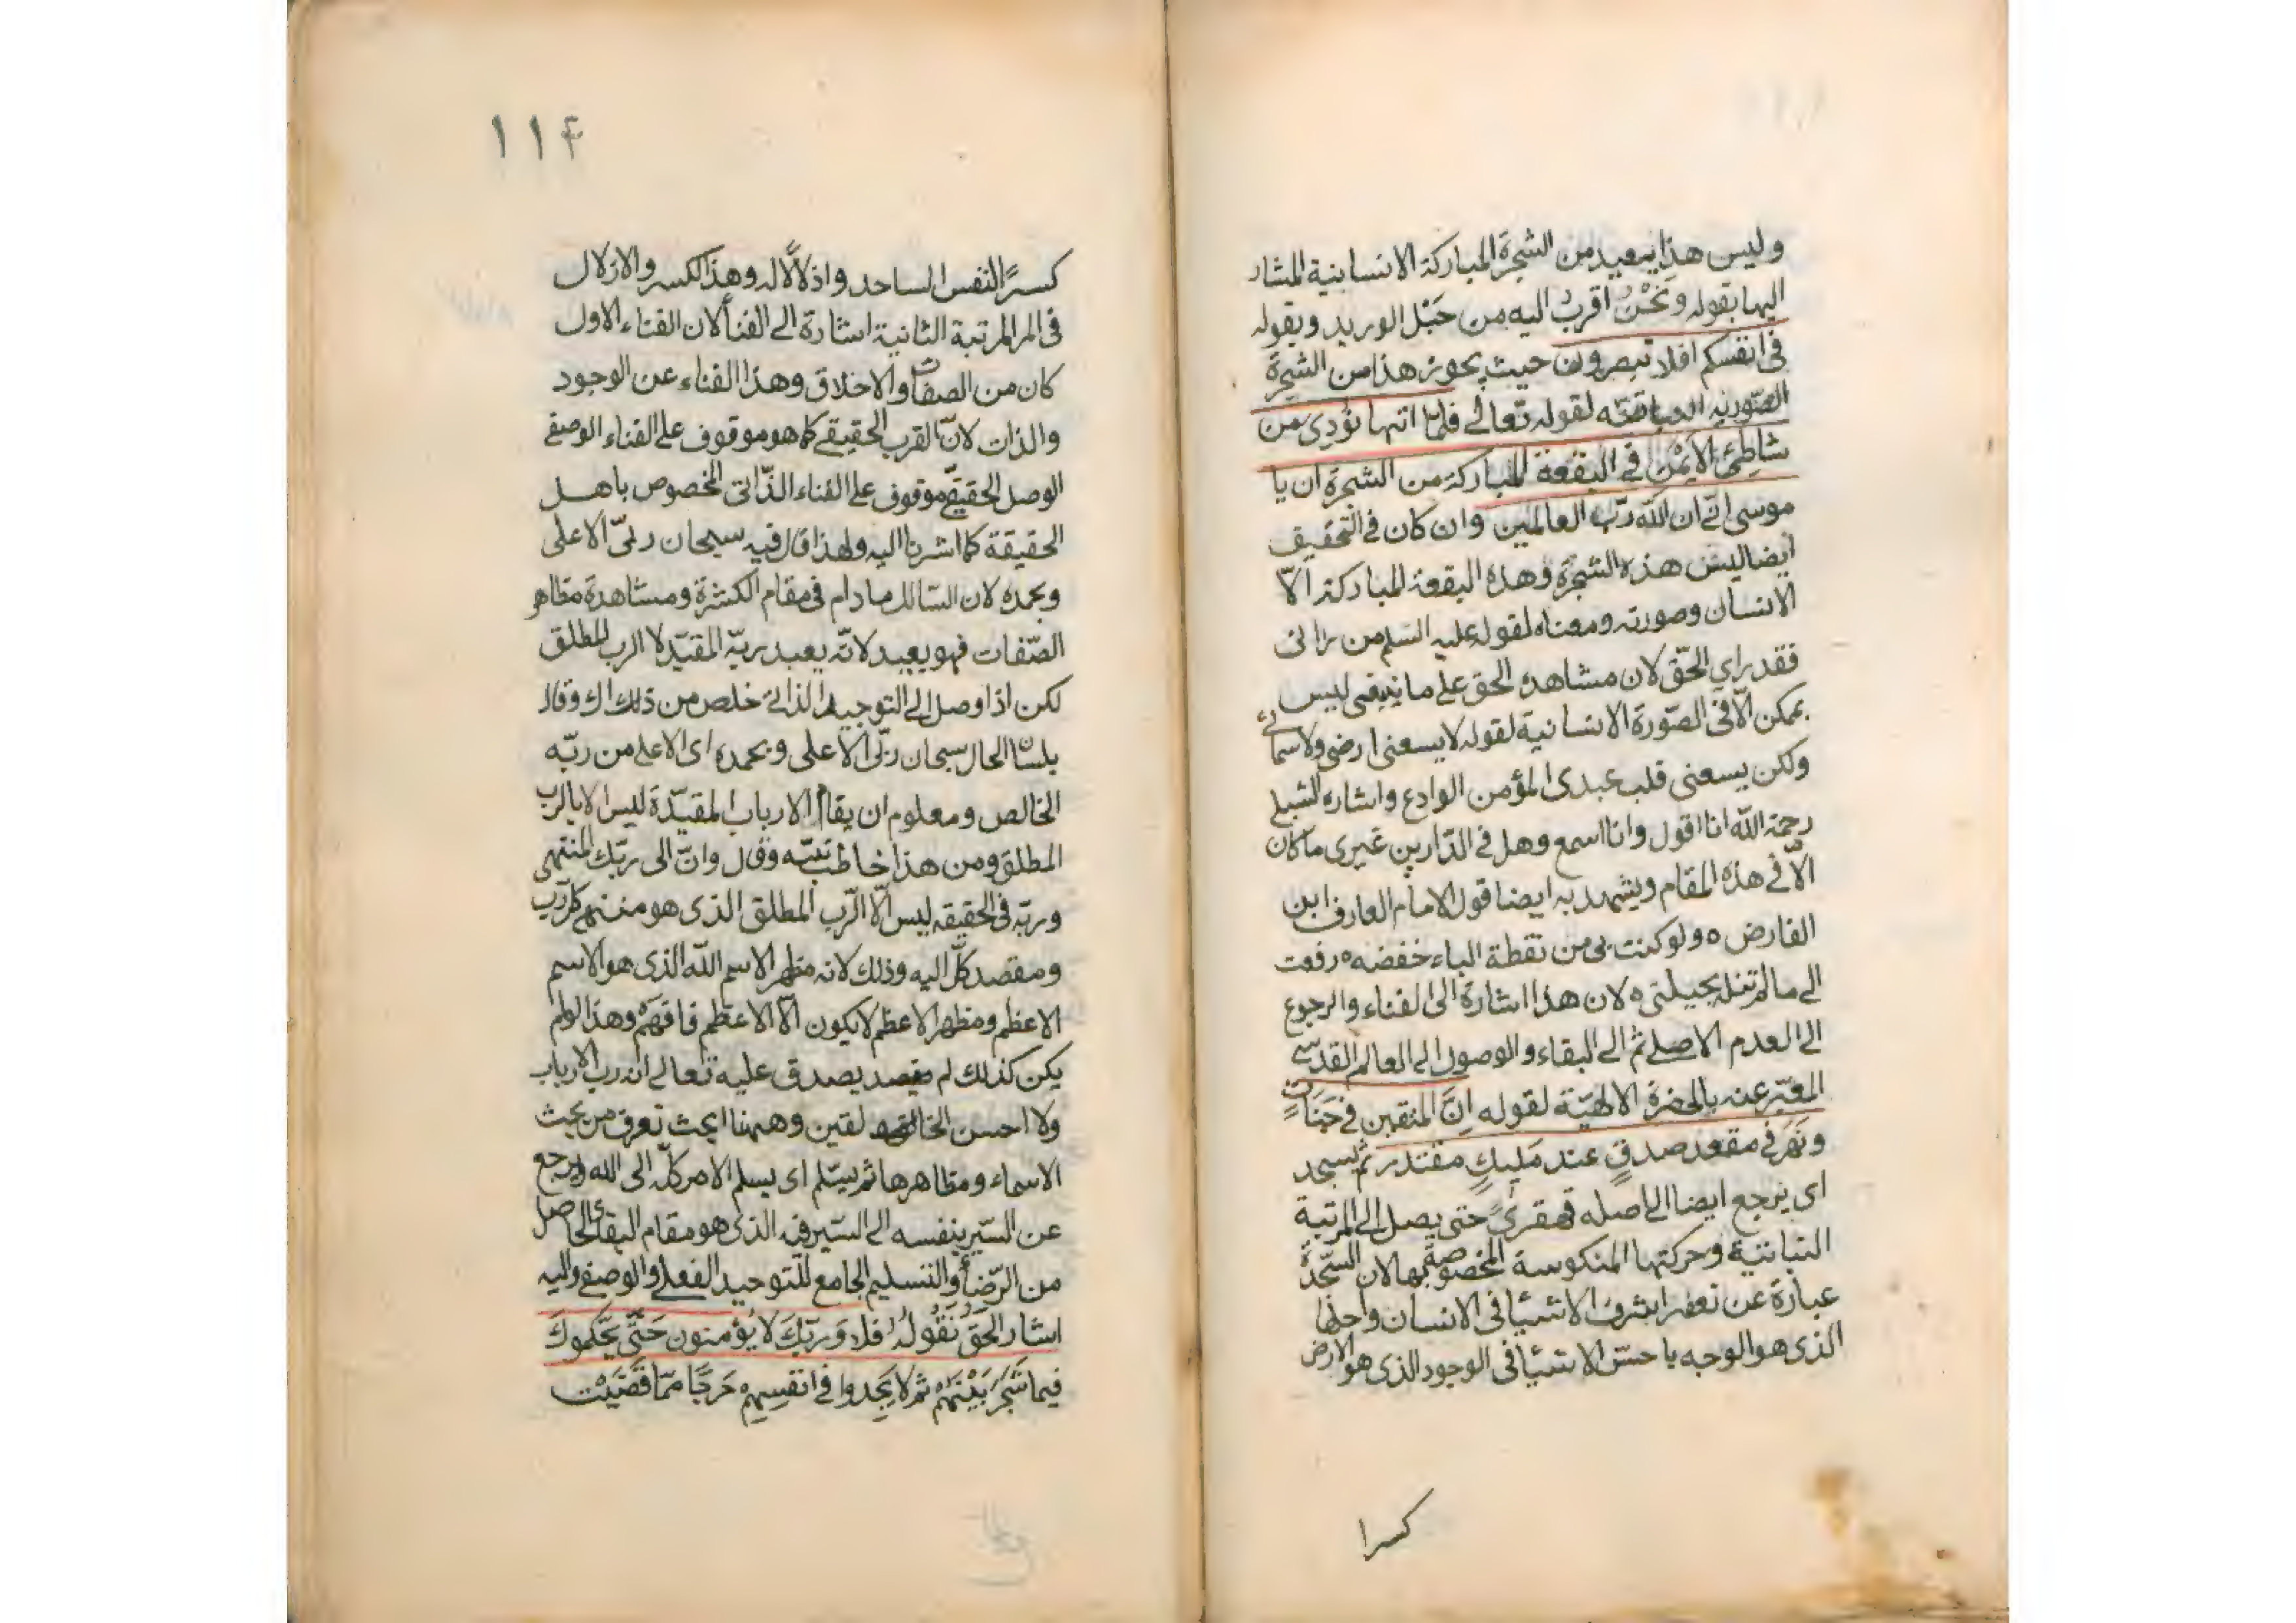 وليس هذا ببعيد من الشجرة المباركة الانسانية المشار
اليها بقوله ونَحْنُ اقربُ اليه من حَبْل الوريد وبقوله
في انفسكم افلا تبصرون حيث يجوز هذا من الشجرة
الصّورية لقوله تعالى فلما اتيها نُودِىَ من
شاطِئ الاَيْمَنِ في البقعة المباركة من الشجرة ان يا
موسى انّى انا اللّه ربّ العالمين وان كان في التحقيق
ايضا ليس هذه الشجرة وهذه البقعة المباركة الّا
الانسان وصورته ومعناه لقوله عليه السّلم من رانى
فقد راى الحّق لان مشاهدة الحق على ما ينبغى ليس
بممكن الّا في الصّورة الانسانية لقوله لا يسعنى ارضى ولا سمائى
ولكن يسعنى قلب عبدى المؤمن الوادع واشارة الشبلى
رحمة اللّه انا اقول وانا اسمع وهل في الدّارين غيرى ما كان
الّا في هذه المقام ويشهد به ايضا قول الامام العارف ابن
الفارض ه ولو كنت بى من نقطة الباء خفضه ه رفعت
الى ما لم تنله بحيلتى ه لان هذا اشارة الى الفناء والرجوع
الى العدم الاصلى ثم الى البقاء والوصول الى العالم القدسى
المعبّر عنه بالحضرة الالهيّة لقوله اِنَّ المتقين في جَنّاتٍ
ونَهَر في مقعد صدقٍ عند مَليكٍ مقتدر ثم يسجد
اى يرجع ايضا الى اصله قهقرىً حتى يصل الى المرتبة
النباتيّة وحركتها المنكوسة المخصوصة بها لان السّجدة
عبارة عن تعفير اشرف الاشيا فى الانسان واجلّها
الذى هو الوجه باخسّ الاشيا فى الوجود الذى هو الارض
كسرا
١١۴
كسرًا لنفس الساجد واذلالًا له وهذا الكسر والاذلال
في المرتبة الثانية اشارة الى الفنا لان الفناء الاول
كان من الصفات والاخلاق وهذا الفناء عن الوجود
والذات لانّ القرب الحقيقى كما هو موقوف على الفناء الوصفى
الوصل الحقيقى موقوف على الفناء الذّاتى المخصوص باهل
الحقيقة كما اشرنا اليه ولهذا قال فيه سبحان ربّى الاعلى
وبحمده لان السّالك ما دام في مقام الكثرة ومشاهدة مظاهر
الصّفات فهو بعيد لانّه يعبد ربّه المقيّد لا الرب المطلق
لكن اذا وصل الى التوحيد الذاتى خلص من ذلك وقال
بلسان الحال سبحان ربّى الاعلى وبحمده اى الاعلى من ربّه
الخالص ومعلوم ان بقاء الارباب المقيّدة ليس الا بالرب
المطلق ومن هذا خاطب نبيّه وقال وانّ الى ربّك المنتهى
وربّه في الحقيقه ليس الّا الرّب المطلق الذى هو منتهى كل ربّ
ومقصد كلّ اليه وذلك لانه مظهر الاسم اللّه الذى هو الاسم
الاعظم ومظهر الاعظم لا يكون الّا الاعظم فافهم وهذا لو لم
يكن كذلك لم يصدق عليه تعالى انه رب الارباب
ولا احسن الخالقين وههنا ابحث تعرف من بحث
الاسماء ومظاهرها ثم يسلّم اى يسلم الامر كلّه الى الله ويرجع
عن السّير بنفسه الى السّير فيه الذى هو مقام البقاء الحاصل
من الرّضا والتسليم الجامع للتوحيد الفعلى والوصفى واليه
اشار الحَقّ بقوله فلا وَرَبّكَ لا يُؤمنون حَتّى يحكّموكَ
فيما شَجَرَ بَيْنَهُم ثم لا يَجِدوا في انفسِهِم حَرَجًا ممّا قَضَيْت